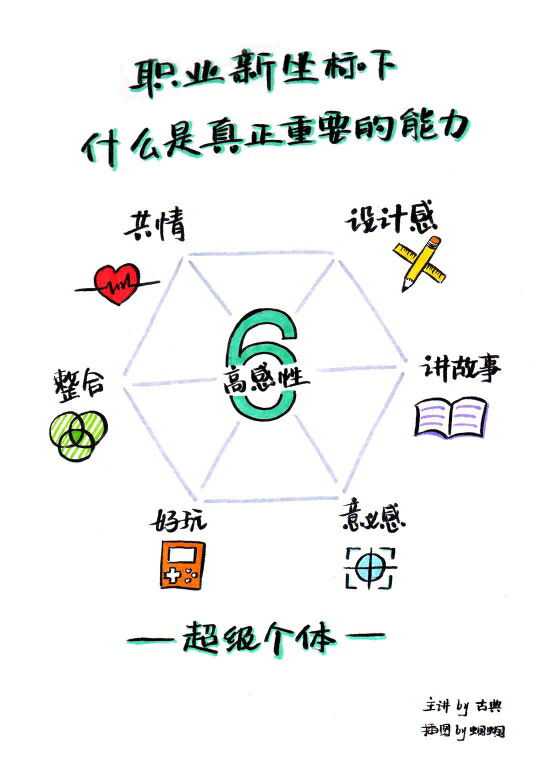 职业新坐标下
什么是真正重要的能力
共情
设计感
整合
6
高感性
讲故事
好玩
意义感
—超级个体—
主讲 by 古典
插图 by 蝈蝈